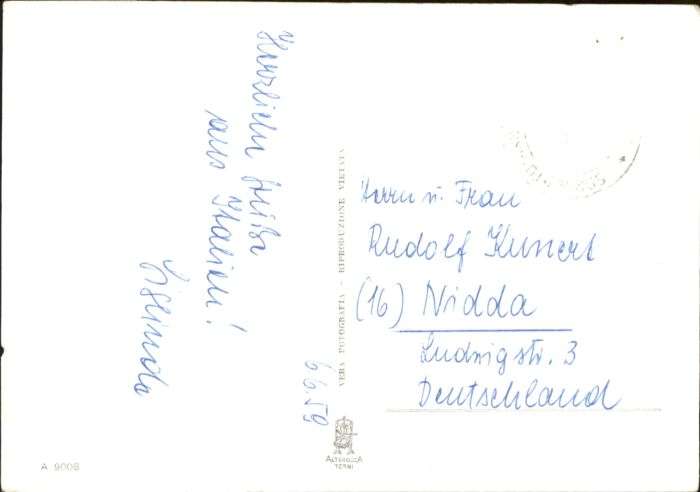 Herzliche Grüße
aus Italien!
6.6.59
VERA FOTOGRAFIA - RIPRODUZIONE VIETATA
Herrn u. Frau
Rudolf Kunert
(16) Nidda
Ludwigstr. 3
Deutschland
ALTEROCCA
TERNI
A 9009